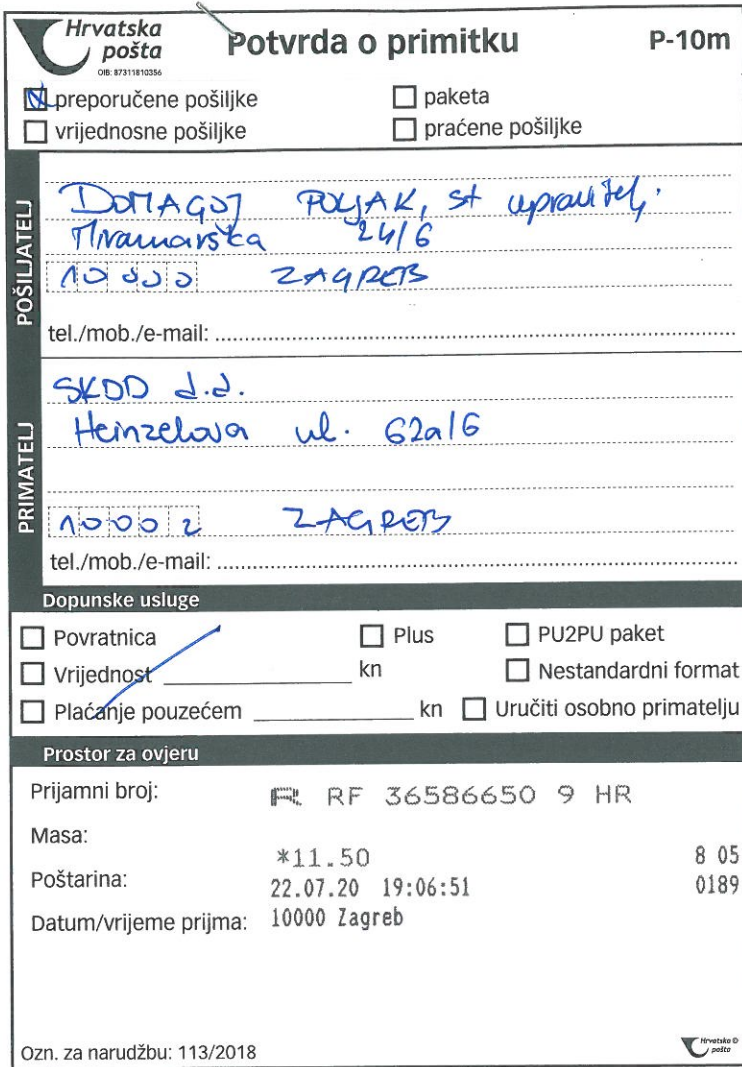 Hrvatska pošta
OIB: 87311810356
Potvrda o primitku
P-10m
preporučene pošiljke
paketa
vrijednosne pošiljke
praćene pošiljke
POŠILJATELJ
DOMAGOJ POLJAK, st upravitelj.
Miramarska 24/6
10000 ZAGREB
tel./mob./e-mail:
PRIMATELJ
SKDD d.d.
Heinzelova ul. 62a/6
10002 ZAGREB
tel./mob./e-mail:
Dopunske usluge
Povratnica
Plus
PU2PU paket
Vrijednost kn
Nestandardni format
Plaćanje pouzećem kn
Uručiti osobno primatelju
Prostor za ovjeru
Prijamni broj: R RF 36586650 9 HR
Masa:
*11.50 8 05
Poštarina:
22.07.20 19:06:51 0189
Datum/vrijeme prijma: 10000 Zagreb
Ozn. za narudžbu: 113/2018
Hrvatska pošta